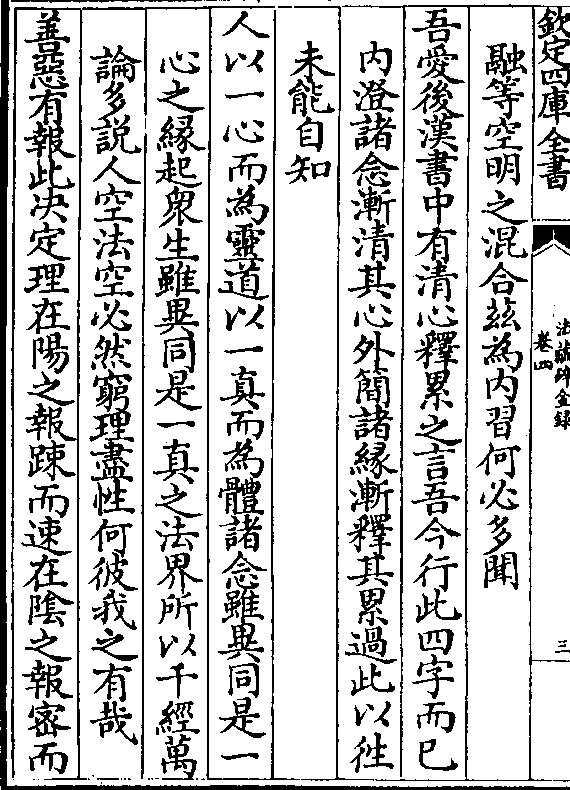 欽定四庫全書
法藏碎金錄
卷四
三
融等空明之混合玆為内習何必多聞
吾愛後漢書中有清心釋累之言吾今行此四字而已
内澄諸念漸清其心外簡諸緣漸釋其累過此以徃
未能自知
人以一心而為靈道以一真而為體諸念雖異同是一
心之緣起衆生雖異同是一真之法界所以千經萬
論多説人空法空必然窮理盡性何彼我之有哉
善惡有報此決定理在陽之報踈而速在隂之報宻而